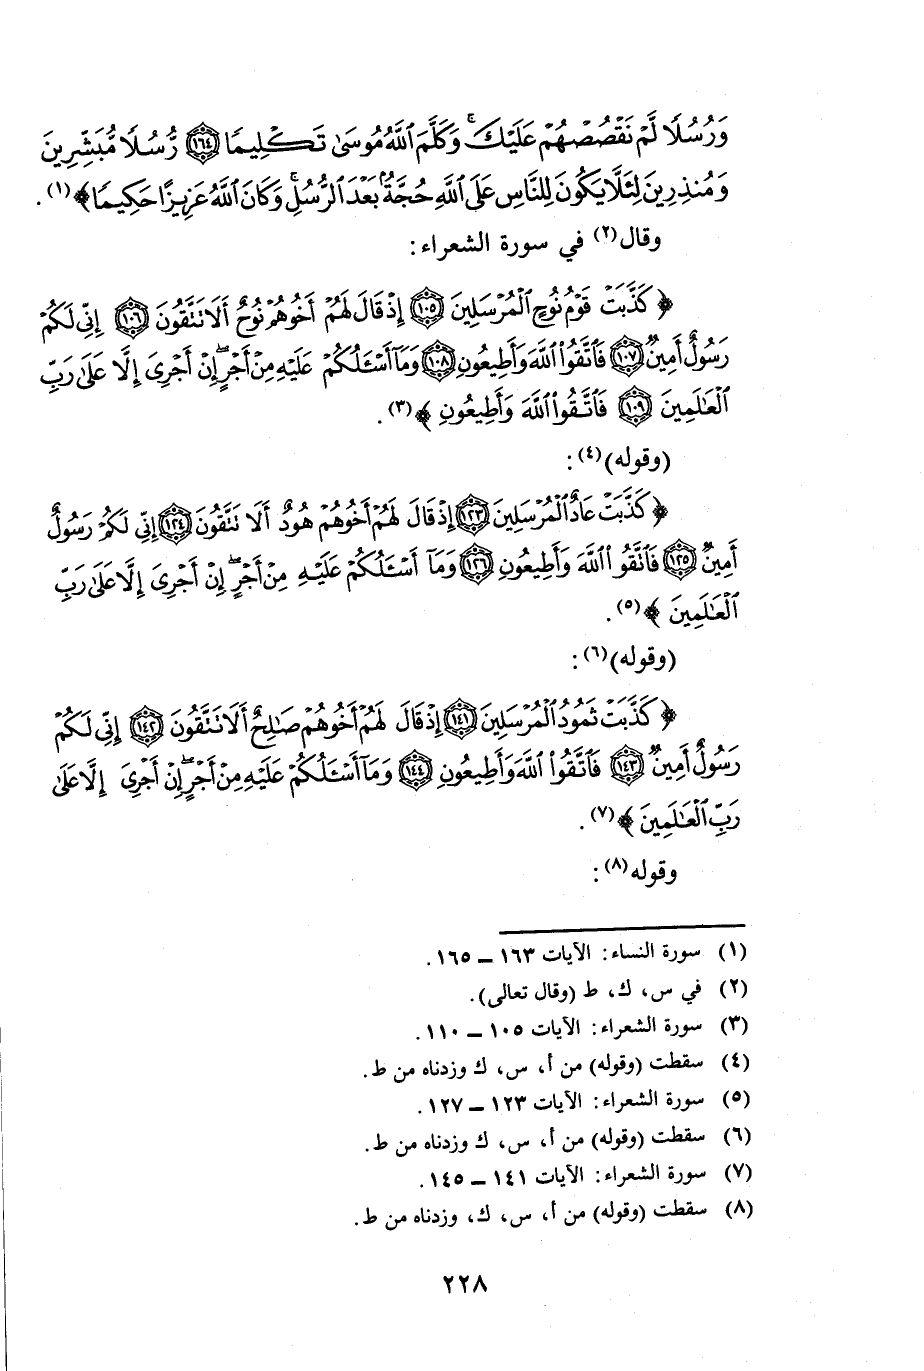 وَرُسُلًا لَّمْ نَقْصُصْهُمْ عَلَيْكَ ۚ وَكَلَّمَ ٱللَّهُ مُوسَىٰ تَكْلِيمًا ﴿١٦٤﴾ رُّسُلًا مُّبَشِّرِينَ
وَمُنذِرِينَ لِئَلَّا يَكُونَ لِلنَّاسِ عَلَى ٱللَّهِ حُجَّةٌۢ بَعْدَ ٱلرُّسُلِ ۚ وَكَانَ ٱللَّهُ عَزِيزًا حَكِيمًا﴾(١).
وقال(٢) في سورة الشعراء:
﴿كَذَّبَتْ قَوْمُ نُوحٍ ٱلْمُرْسَلِينَ ﴿١٠٥﴾ إِذْ قَالَ لَهُمْ أَخُوهُمْ نُوحٌ أَلَا تَتَّقُونَ ﴿١٠٦﴾ إِنِّى لَكُمْ
رَسُولٌ أَمِينٌ ﴿١٠٧﴾ فَٱتَّقُوا۟ ٱللَّهَ وَأَطِيعُونِ ﴿١٠٨﴾ وَمَآ أَسْـَٔلُكُمْ عَلَيْهِ مِنْ أَجْرٍ ۖ إِنْ أَجْرِىَ إِلَّا عَلَىٰ رَبِّ
ٱلْعَٰلَمِينَ ﴿١٠٩﴾ فَٱتَّقُوا۟ ٱللَّهَ وَأَطِيعُونِ﴾(٣).
(وقوله)(٤):
﴿كَذَّبَتْ عَادٌ ٱلْمُرْسَلِينَ ﴿١٢٣﴾ إِذْ قَالَ لَهُمْ أَخُوهُمْ هُودٌ أَلَا تَتَّقُونَ ﴿١٢٤﴾ إِنِّى لَكُمْ رَسُولٌ
أَمِينٌ ﴿١٢٥﴾ فَٱتَّقُوا۟ ٱللَّهَ وَأَطِيعُونِ ﴿١٢٦﴾ وَمَآ أَسْـَٔلُكُمْ عَلَيْهِ مِنْ أَجْرٍ ۖ إِنْ أَجْرِىَ إِلَّا عَلَىٰ رَبِّ
ٱلْعَٰلَمِينَ﴾(٥).
(وقوله)(٦):
﴿كَذَّبَتْ ثَمُودُ ٱلْمُرْسَلِينَ ﴿١٤١﴾ إِذْ قَالَ لَهُمْ أَخُوهُمْ صَٰلِحٌ أَلَا تَتَّقُونَ ﴿١٤٢﴾ إِنِّى لَكُمْ
رَسُولٌ أَمِينٌ ﴿١٤٣﴾ فَٱتَّقُوا۟ ٱللَّهَ وَأَطِيعُونِ ﴿١٤٤﴾ وَمَآ أَسْـَٔلُكُمْ عَلَيْهِ مِنْ أَجْرٍ ۖ إِنْ أَجْرِىَ إِلَّا عَلَىٰ
رَبِّ ٱلْعَٰلَمِينَ﴾(٧).
وقوله(٨):
(١) سورة النساء: الآيات ١٦٣ ــ ١٦٥.
(٢) في س، ك، ط (وقال تعالى).
(٣) سورة الشعراء: الآيات ١٠٥ ــ ١١٠.
(٤) سقطت (وقوله) من أ، س، ك وزدناه من ط.
(٥) سورة الشعراء: الآيات ١٢٣ ــ ١٢٧.
(٦) سقطت (وقوله) من أ، س، ك وزدناه من ط.
(٧) سورة الشعراء: الآيات ١٤١ ــ ١٤٥.
(٨) سقطت (وقوله) من أ، س، ك، وزدناه من ط.
٢٢٨